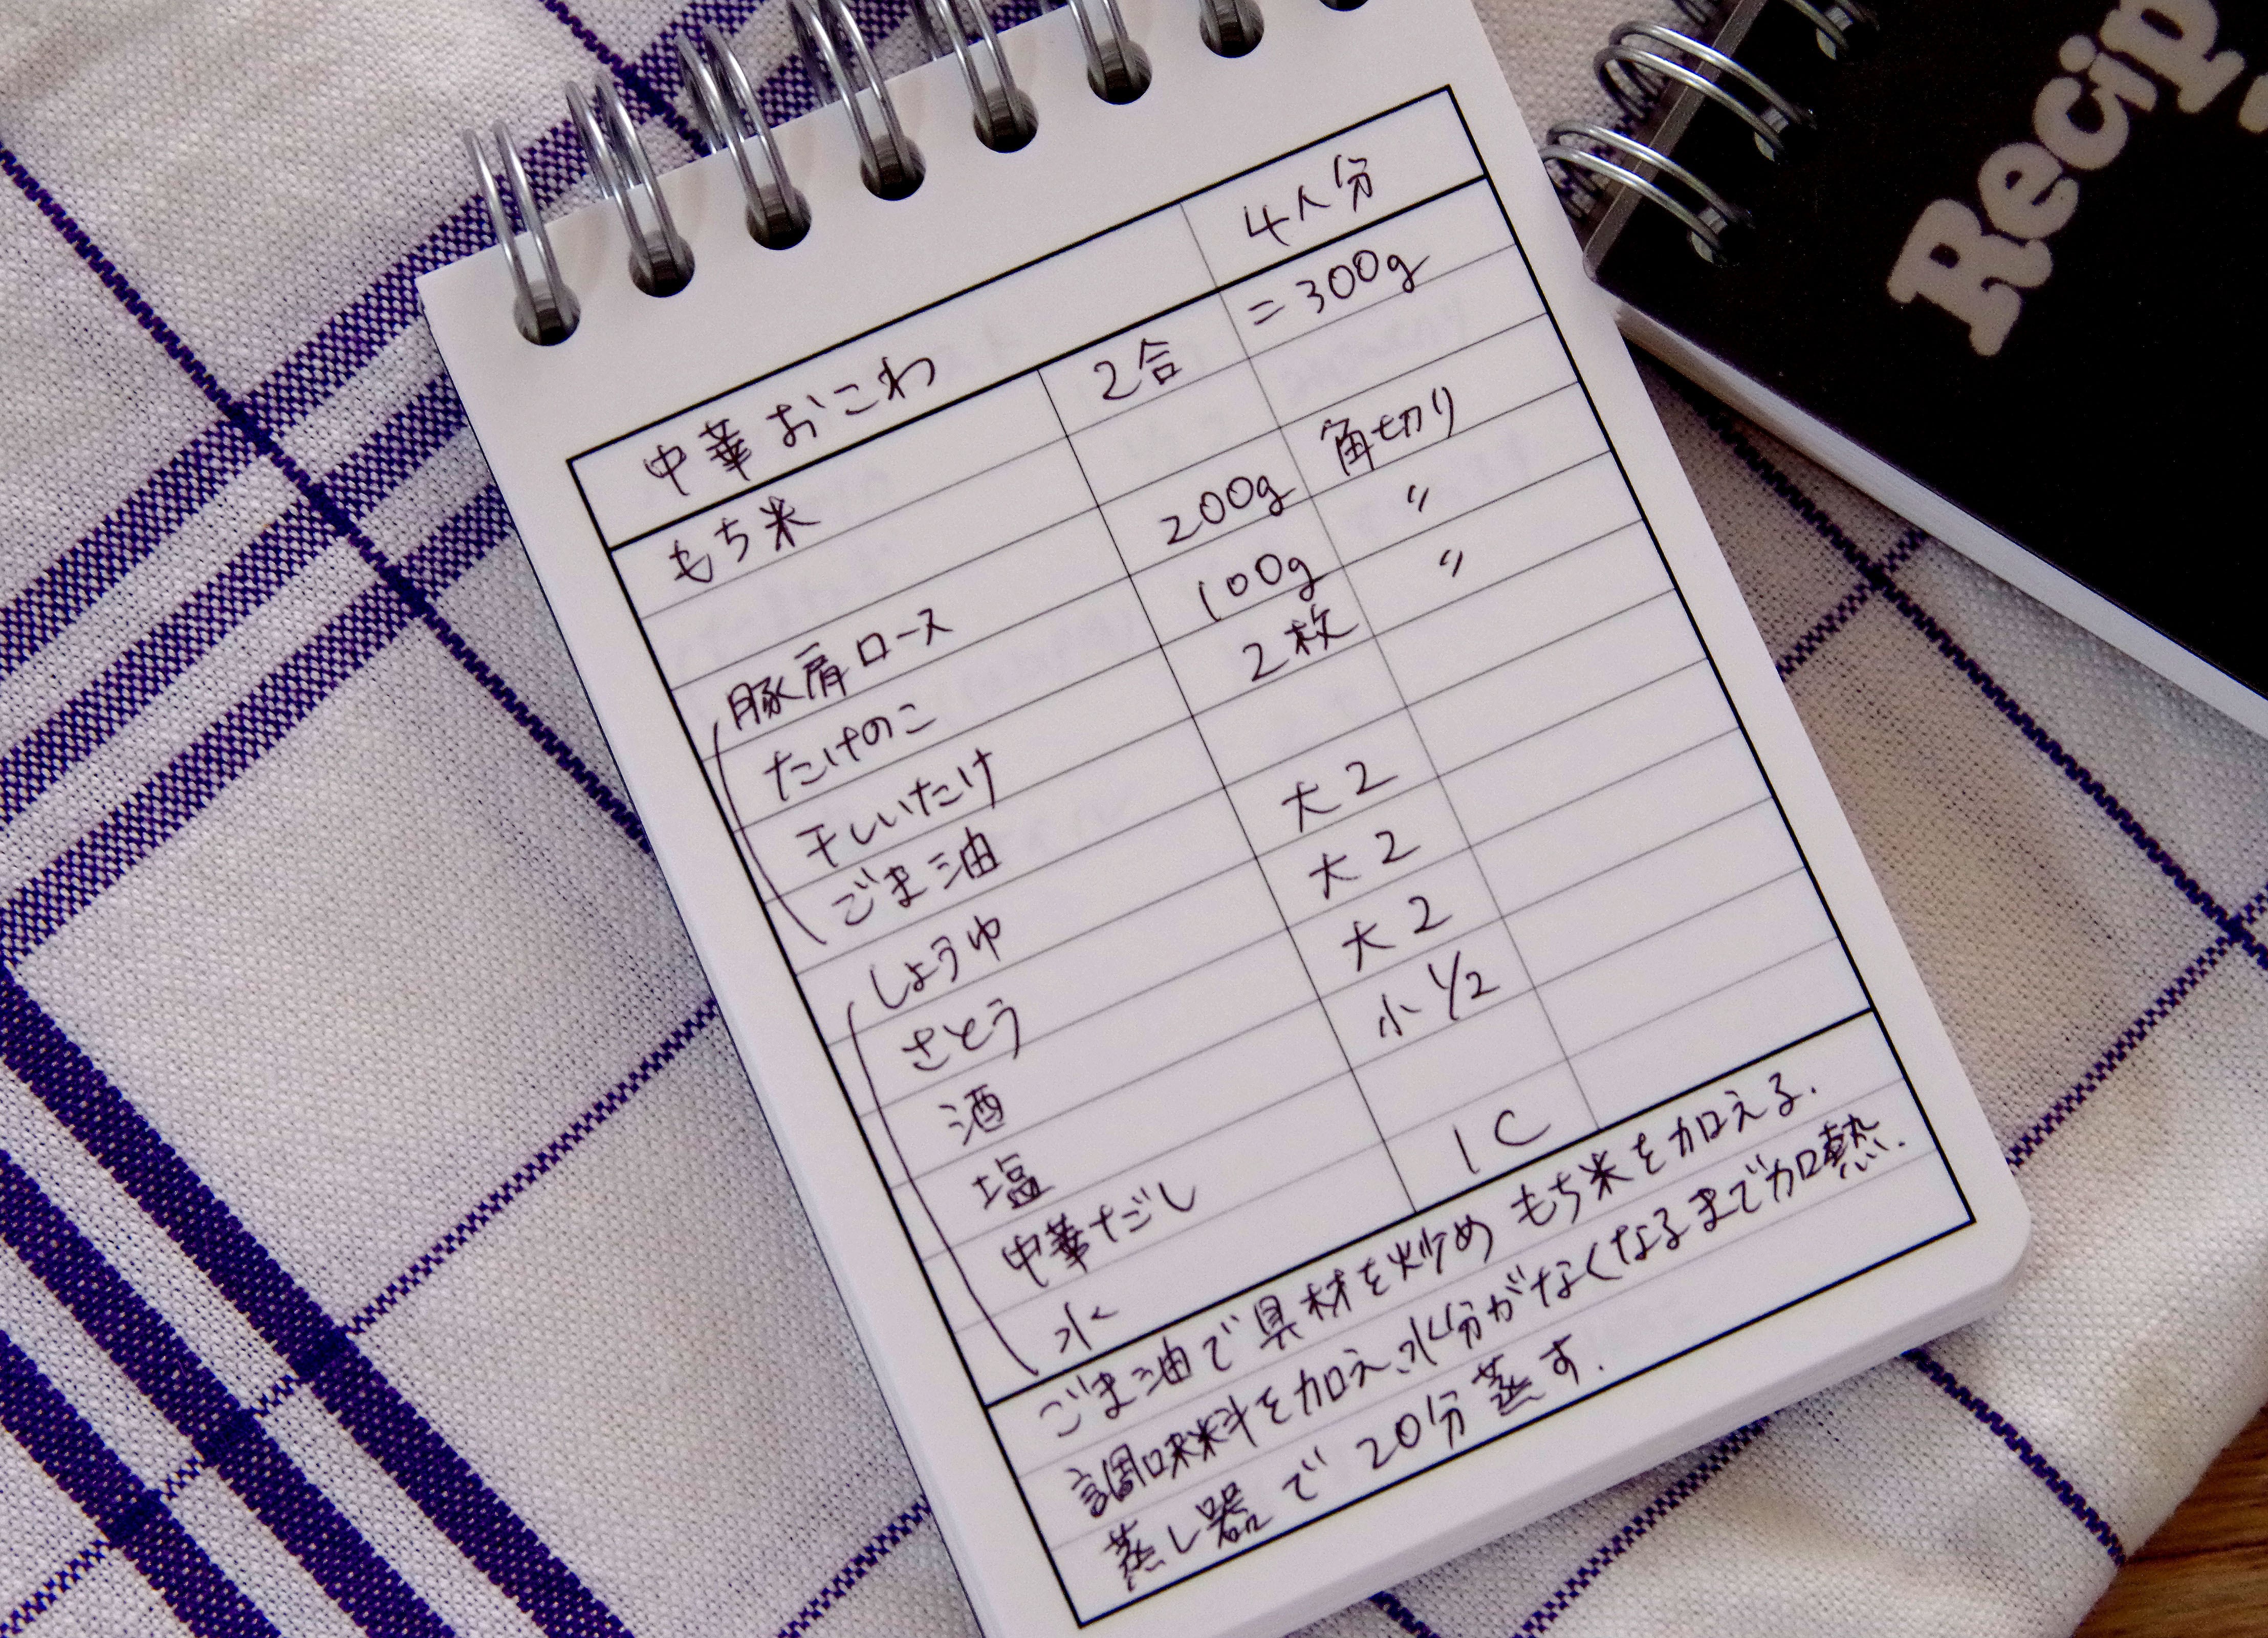 中華おこわ 4人分
もち米 2合 =300g
豚肩ロース 200g 角切り
たけのこ 100g 〃
干しいたけ 2枚 〃
ごま油
しょうゆ 大2
さとう 大2
酒 大2
塩 小1/2
中華だし
水 1C
ごま油で具材を炒め もち米を加える.
調味料を加え、水分がなくなるまで加熱.
蒸し器で20分蒸す.
Recip